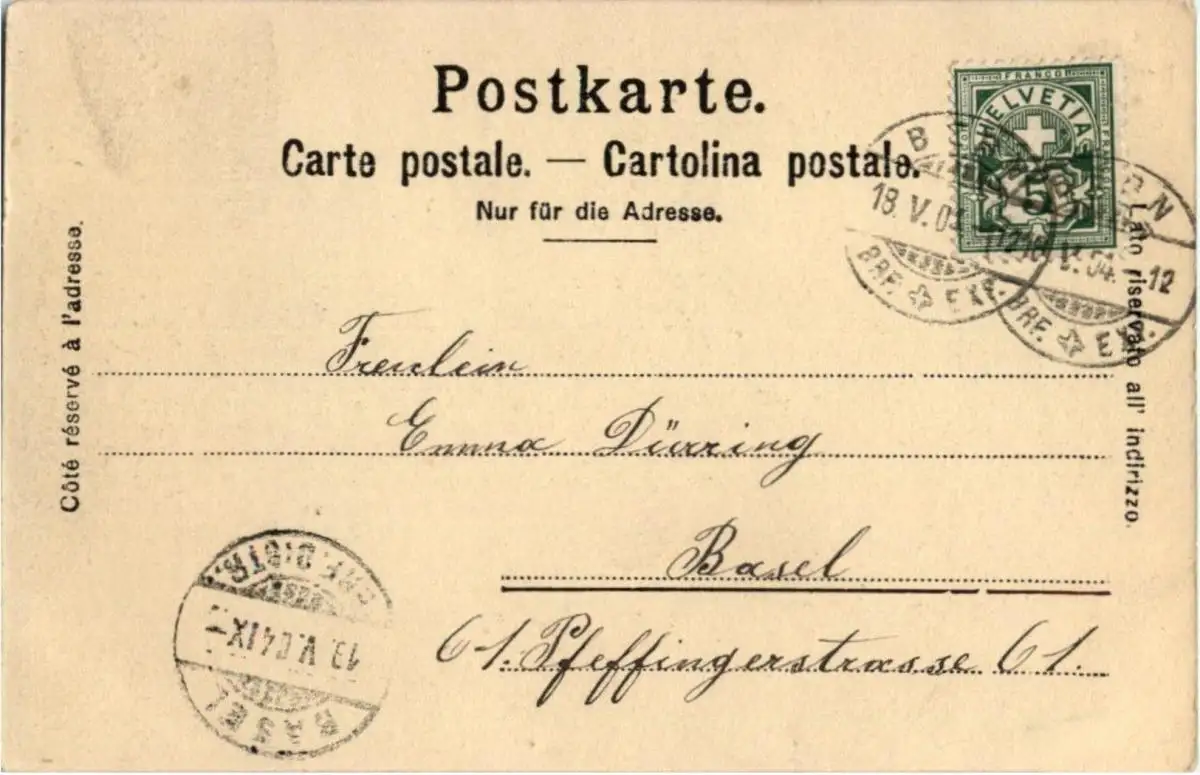 Postkarte.
Carte postale. — Cartolina postale.
Nur für die Adresse.
Côté réservé à l'adresse.
Lato riservato all' indirizzo.
FRANCO
HELVETIA
5
18.V.04
BRF. EXP.
V.04. 12
BRF. EXP.
Freulein
Emma Dürring
Basel
61. Pfeffingerstrasse 61.
BRF. DISTR.
19.V.04 IX
BASEL